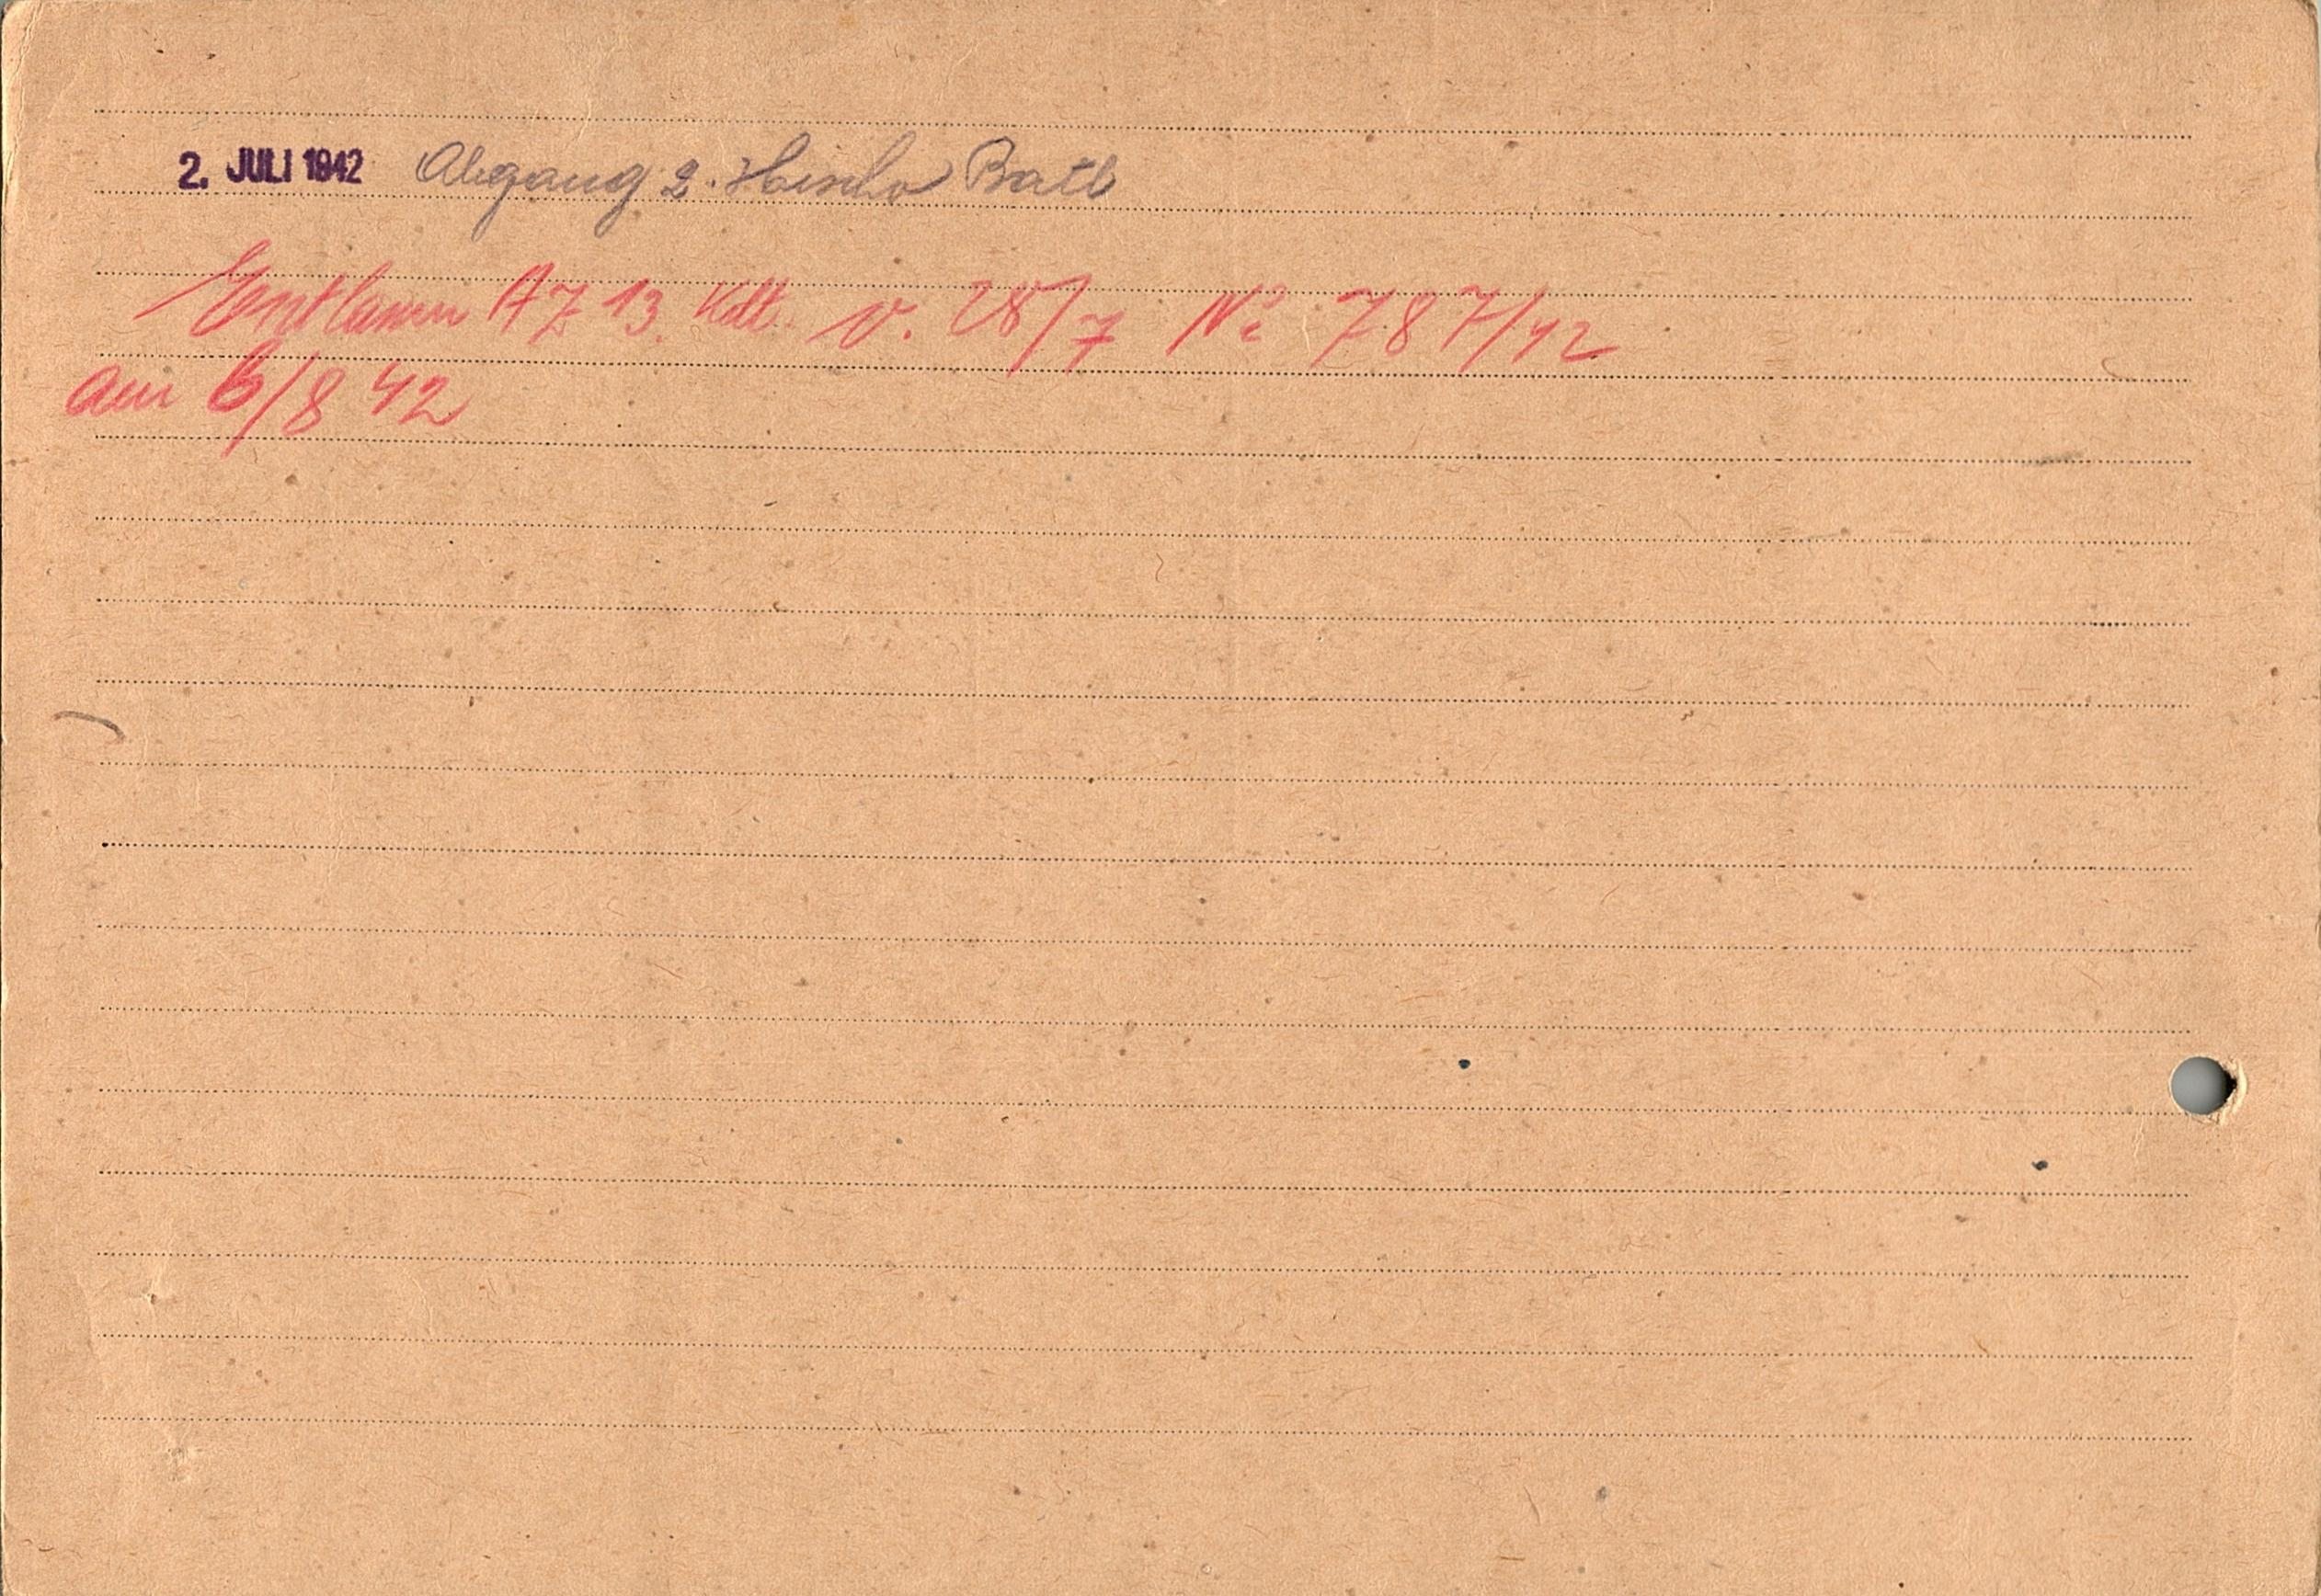 2. JULI 1942 Abgang 2. Heischo Batl
Entlassen AZ 13. Kdt. v. 28/7 No 787/42
am 6/8 42